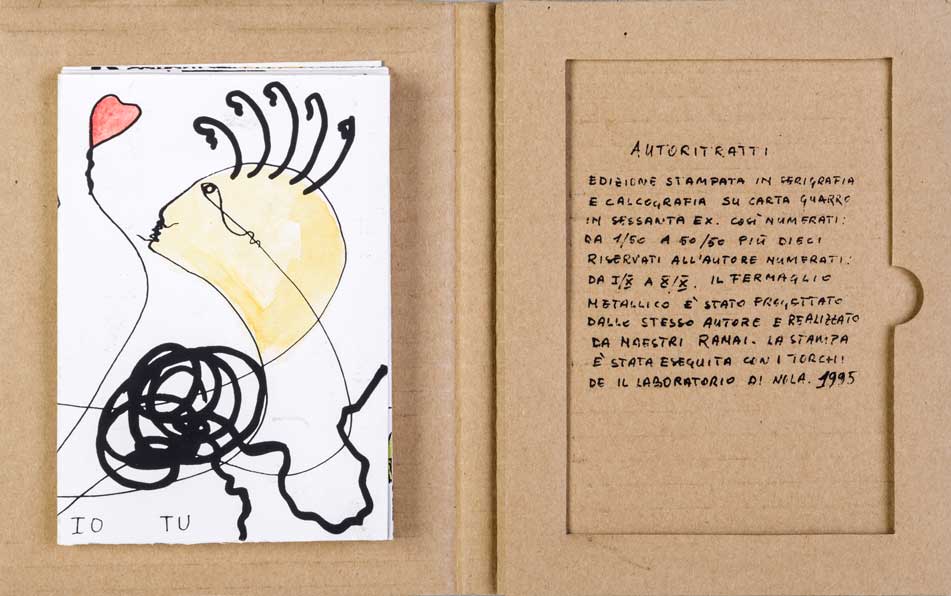 IO TU
AUTORITRATTI
EDIZIONE STAMPATA IN SERIGRAFIA
E CALCOGRAFIA SU CARTA GUARRO
IN SESSANTA EX. COSÌ NUMERATI:
DA 1/50 A 50/50 PIÙ DIECI
RISERVATI ALL'AUTORE NUMERATI:
DA I/X A X/X. IL FERMAGLIO
METALLICO E' STATO PROGETTATO
DALLO STESSO AUTORE E REALIZZATO
DA MAESTRI RAMAI. LA STAMPA
È STATA ESEGUITA CON I TORCHI
DE IL LABORATORIO DI NOLA. 1995